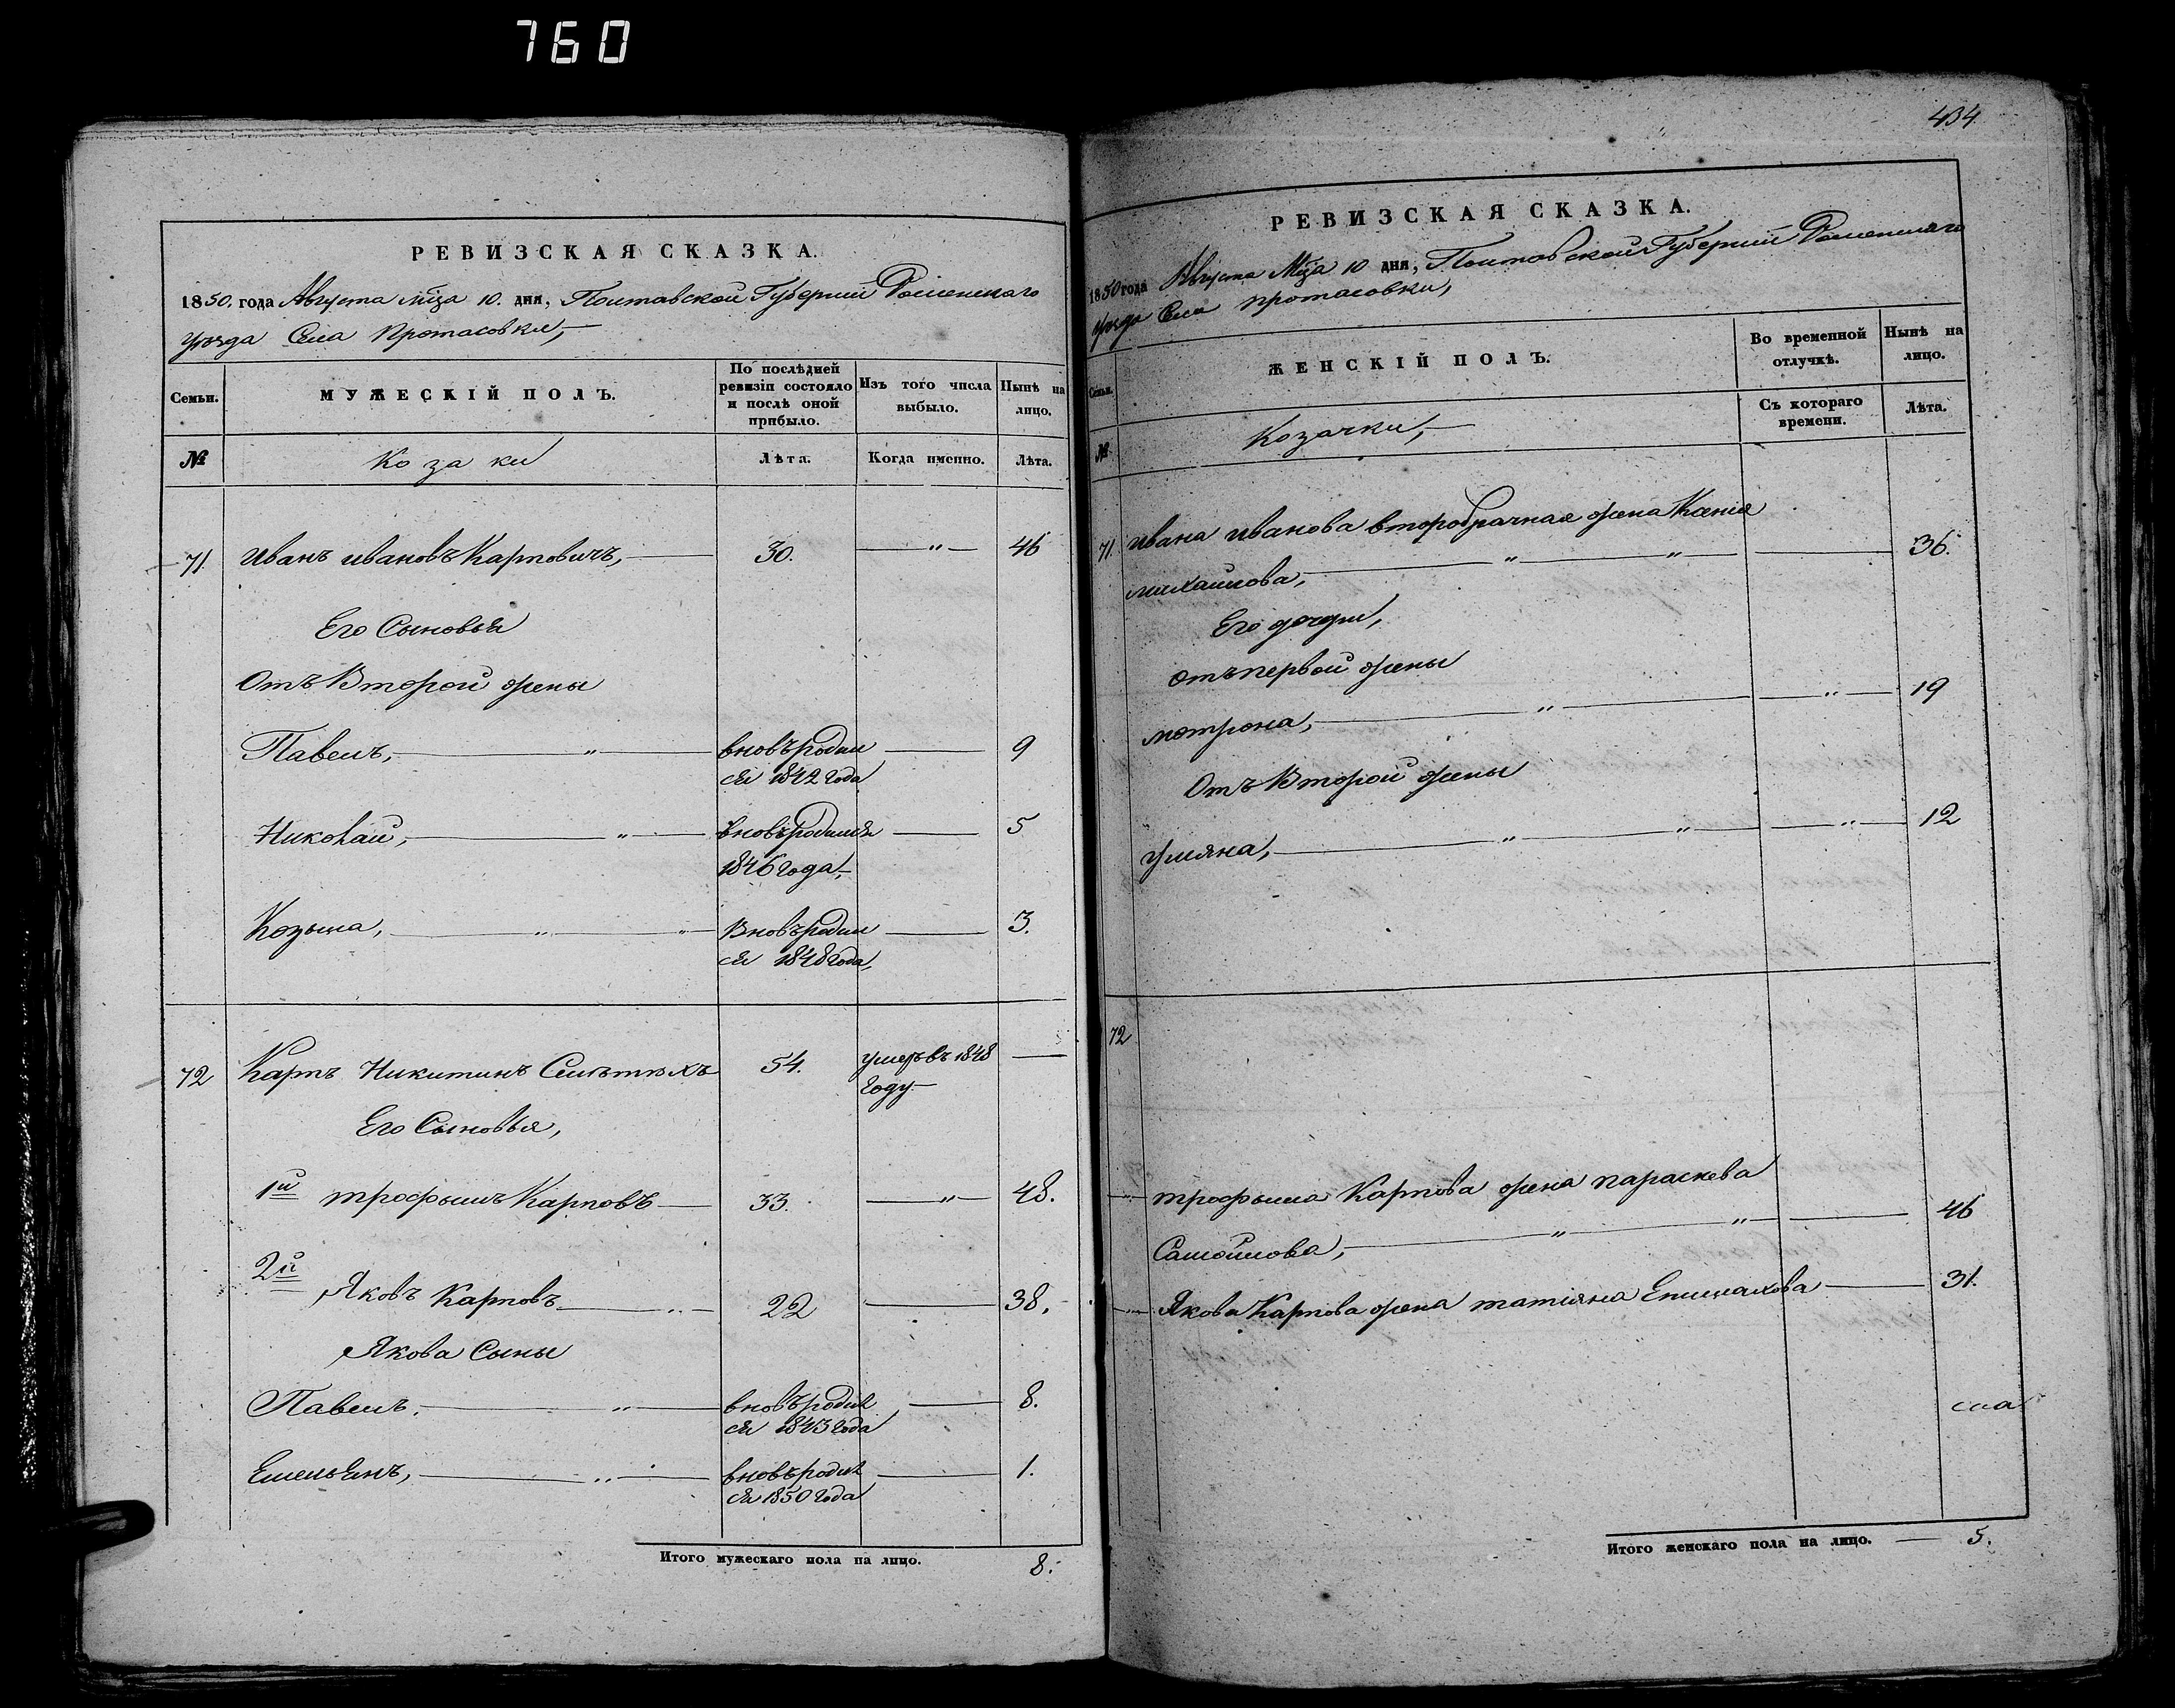 760
РЕВИЗСКАЯ СКАЗКА.
1850. года Августа мца 10. дня, Полтавской Губернии Роменскаго
уезда Села Протасовки,
Семьи.
МУЖЕСКІЙ ПОЛЪ.
По послѣдней ревизіи состояло и послѣ оной прибыло.
Изъ того числа выбыло.
Нынѣ на лицо.
№
Козаки
Лѣта.
Когда именно.
Лѣта.
71. Иванъ Ивановъ Карповичъ, 30. — " — 46
Его Сыновья
Отъ Второй жены
Павелъ, — " — вновь родил — 9
ся 1842 года
Николай, — " — вновь родился — 5
1846 года,
Козьма, — " — " — вновь родил — 3.
ся 1848 года,
72 Карпъ Никитинъ 54. умеръ въ 1848 —
году
Его Сыновья,
1й трофымъ Карповъ — 33. — " — 48.
2й
Яковъ Карповъ — 22 — 38.
Якова Сыны
Павелъ. — " — вновь родил — 8.
ся 1843 года
Емельянъ, — " — вновь родил — 1.
ся 1850 года
Итого мужескаго пола на лицо. 8.
434
РЕВИЗСКАЯ СКАЗКА.
1850 года Августа Мца 10 дня, Полтавской Губернии Роменскаго
уезда Села протасовки,
Семьи.
ЖЕНСКІЙ ПОЛЪ.
Во временной отлучкѣ.
Нынѣ на лицо.
№
Козачки,
Съ котораго времени.
Лѣта.
71. Ивана Иванова второбрачная жена Ксенія
михайлова, — " — " — 36.
Его дочери,
отъ первой жены
мотрона, — " — " — 19
Отъ Второй жены
уляна, — " — " — " — 12
72
— трофыма Карпова жена параскева
Самойлова, — " — " — 46
— Якова Карпова жена татіяна — 31.
Итого женскаго пола на лицо. — 5.